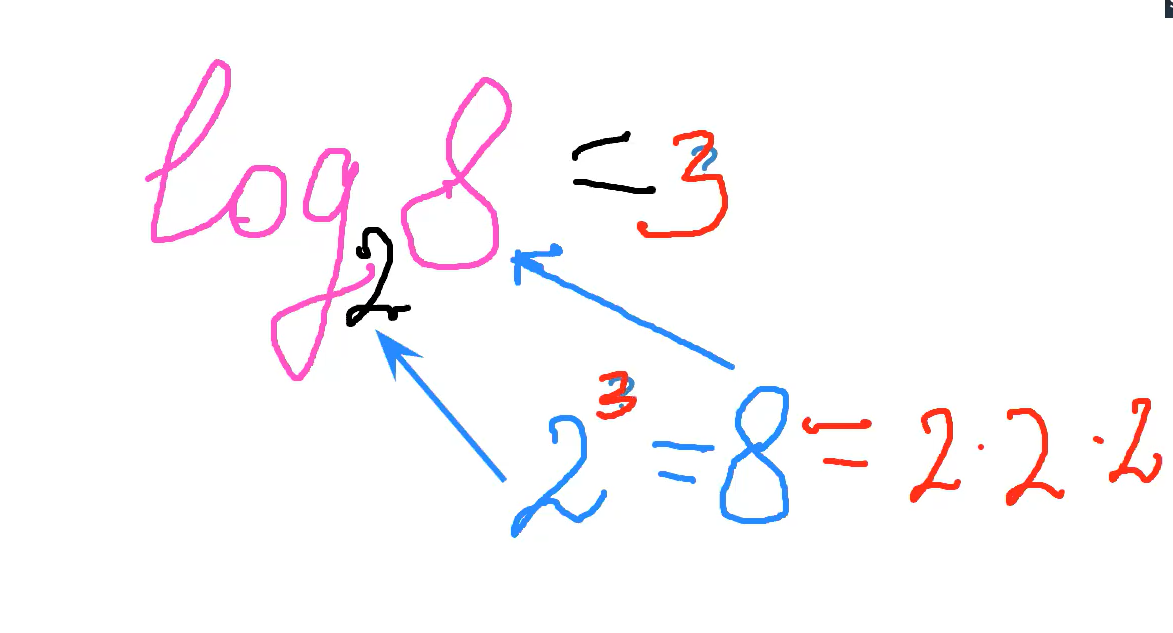 log₂8 = 3
2³ = 8 = 2 · 2 · 2